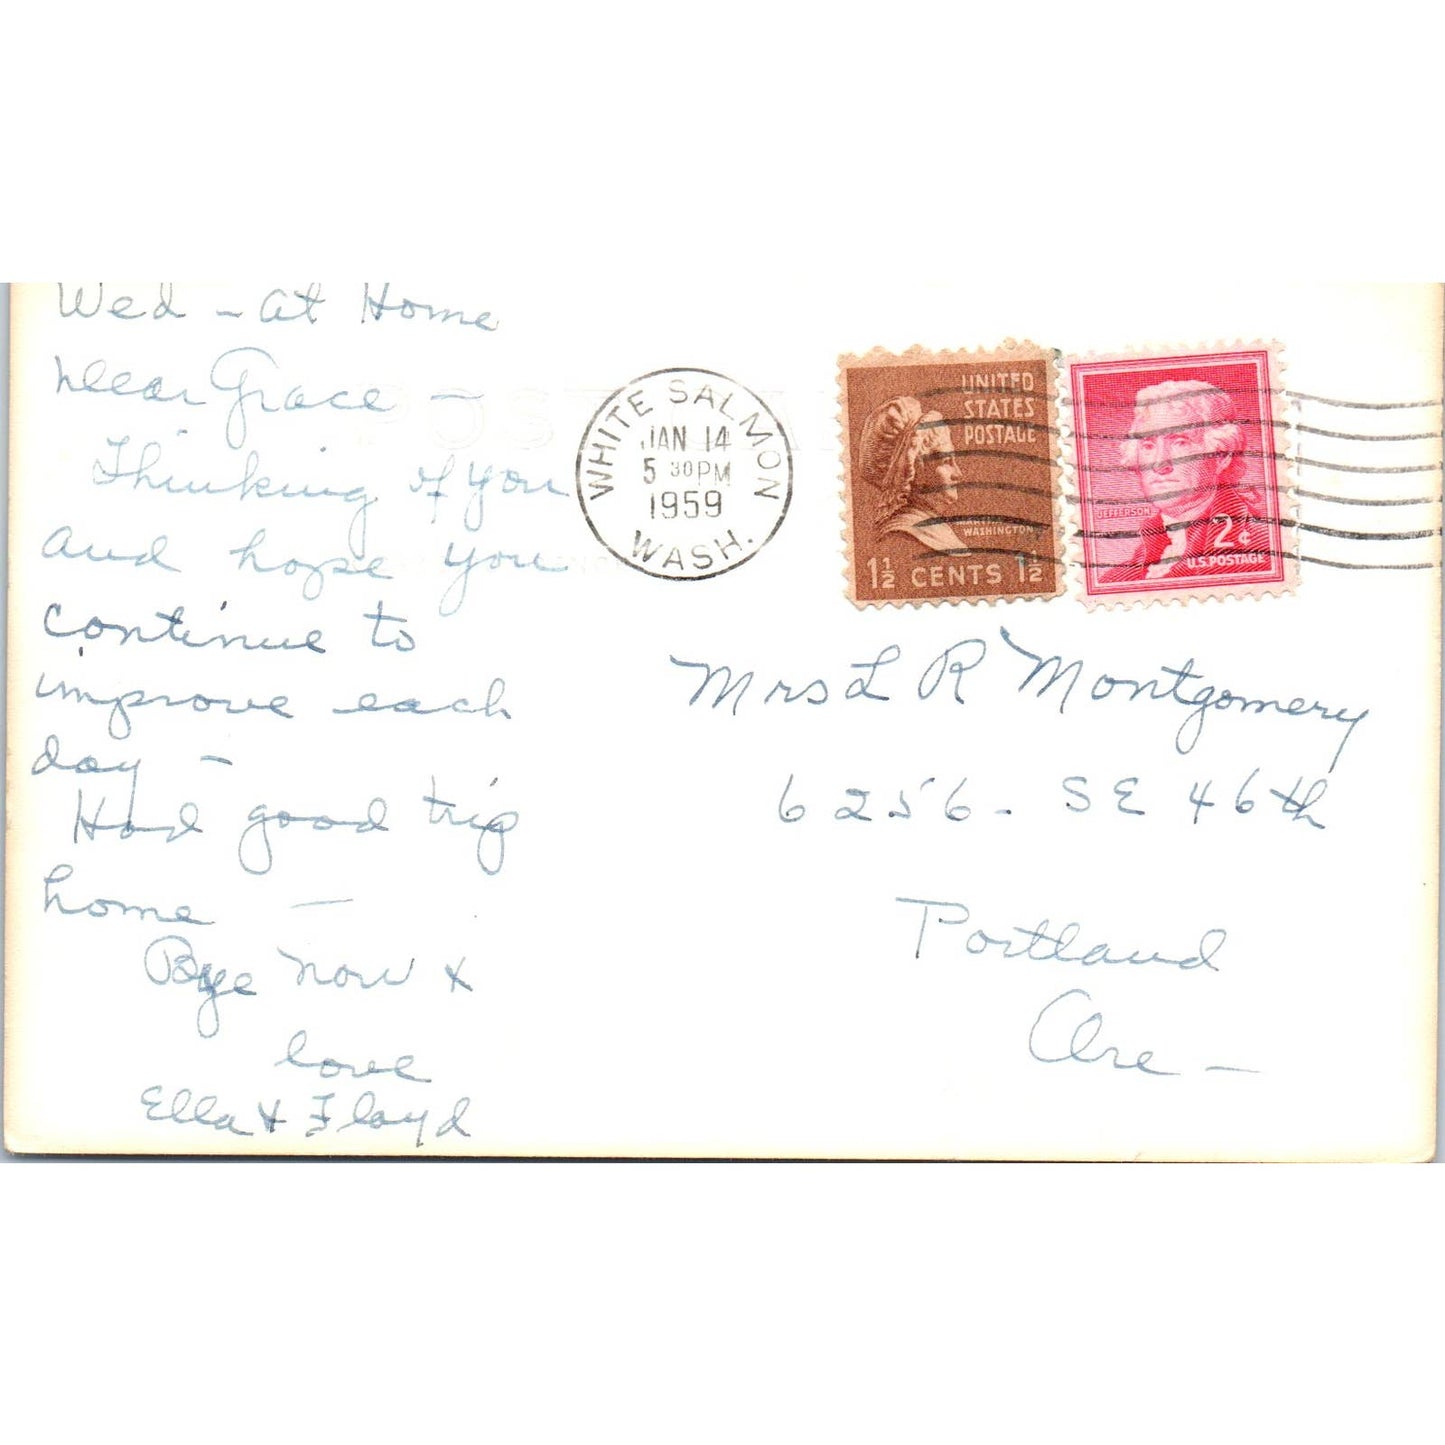 Wed - at Home
Dear Grace -
Thinking of you
and hope you
continue to
improve each
day -
Had good trip
home -
Bye now &
love
Ella & Floyd
POST
WHITE SALMON
JAN 14
5 30 PM
1959
WASH.
UNITED
STATES
POSTAGE
WASHINGTON
1½ CENTS 1½
JEFFERSON
2¢
U.S. POSTAGE
Mrs L R Montgomery
6256 - SE 46th
Portland
Ore -